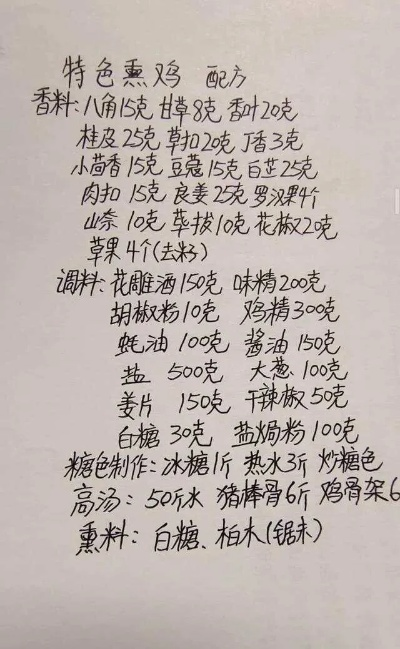 特色熏鸡 配方
香料:八角15克 甘草8克 香叶20克
桂皮25克 草扣20克 丁香3克
小茴香15克 豆蔻15克 白芷25克
肉扣 15克 良姜25克 罗汉果4个
山奈 10克 荜拔10克 花椒20克
草果4个(去籽)
调料:花雕酒150克 味精200克
胡椒粉10克 鸡精300克
蚝油 100克 酱油150克
盐 500克 大葱100克
姜片 150克 干辣椒50克
白糖30克 盐焗粉100克
糖色制作:冰糖1斤 热水3斤 炒糖色
高汤:50斤水 猪棒骨6斤 鸡骨架6
熏料:白糖、柏木(锯末)